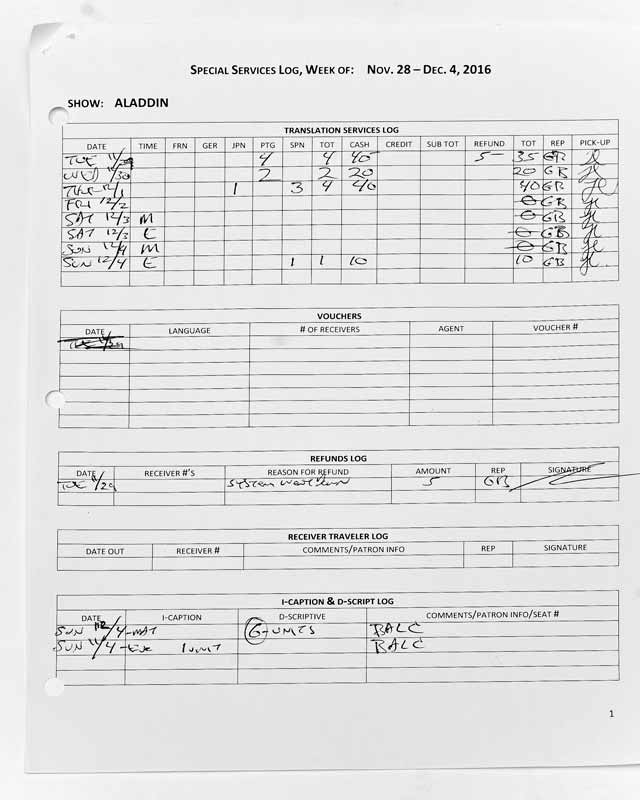 SPECIAL SERVICES LOG, WEEK OF: NOV. 28 – DEC. 4, 2016
SHOW: ALADDIN
TRANSLATION SERVICES LOG
DATE TIME FRN GER JPN PTG SPN TOT CASH CREDIT SUB TOT REFUND TOT REP PICK-UP
TUE 11/29 4 4 40 5 35 GB
WED 11/30 2 2 20 20 GB
THU 12/1 1 3 4 40 40 GB
FRI 12/2 0 GB
SAT 12/3 M 0 GB
SAT 12/3 E 0 GB
SUN 12/4 M 0 GB
SUN 12/4 E 1 1 10 10 GB
VOUCHERS
DATE LANGUAGE # OF RECEIVERS AGENT VOUCHER #
REFUNDS LOG
DATE RECEIVER #'S REASON FOR REFUND AMOUNT REP SIGNATURE
TUE 11/29 SYSTEM 5 GB
RECEIVER TRAVELER LOG
DATE OUT RECEIVER # COMMENTS/PATRON INFO REP SIGNATURE
I-CAPTION & D-SCRIPT LOG
DATE I-CAPTION D-SCRIPTIVE COMMENTS/PATRON INFO/SEAT #
SUN /4-MAT 6-UNITS BALC
SUN /4-EVE 1 UNIT BALC
1